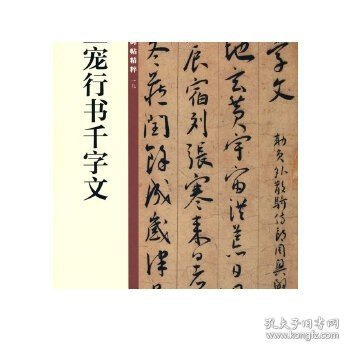 宠行书千字文
碑帖精粹 一九
字文
勅員外散騎侍郎周興嗣
地玄黄宇宙洪荒日
辰宿列張寒来暑
冬藏閏餘成歲律吕
孔夫子旧书网